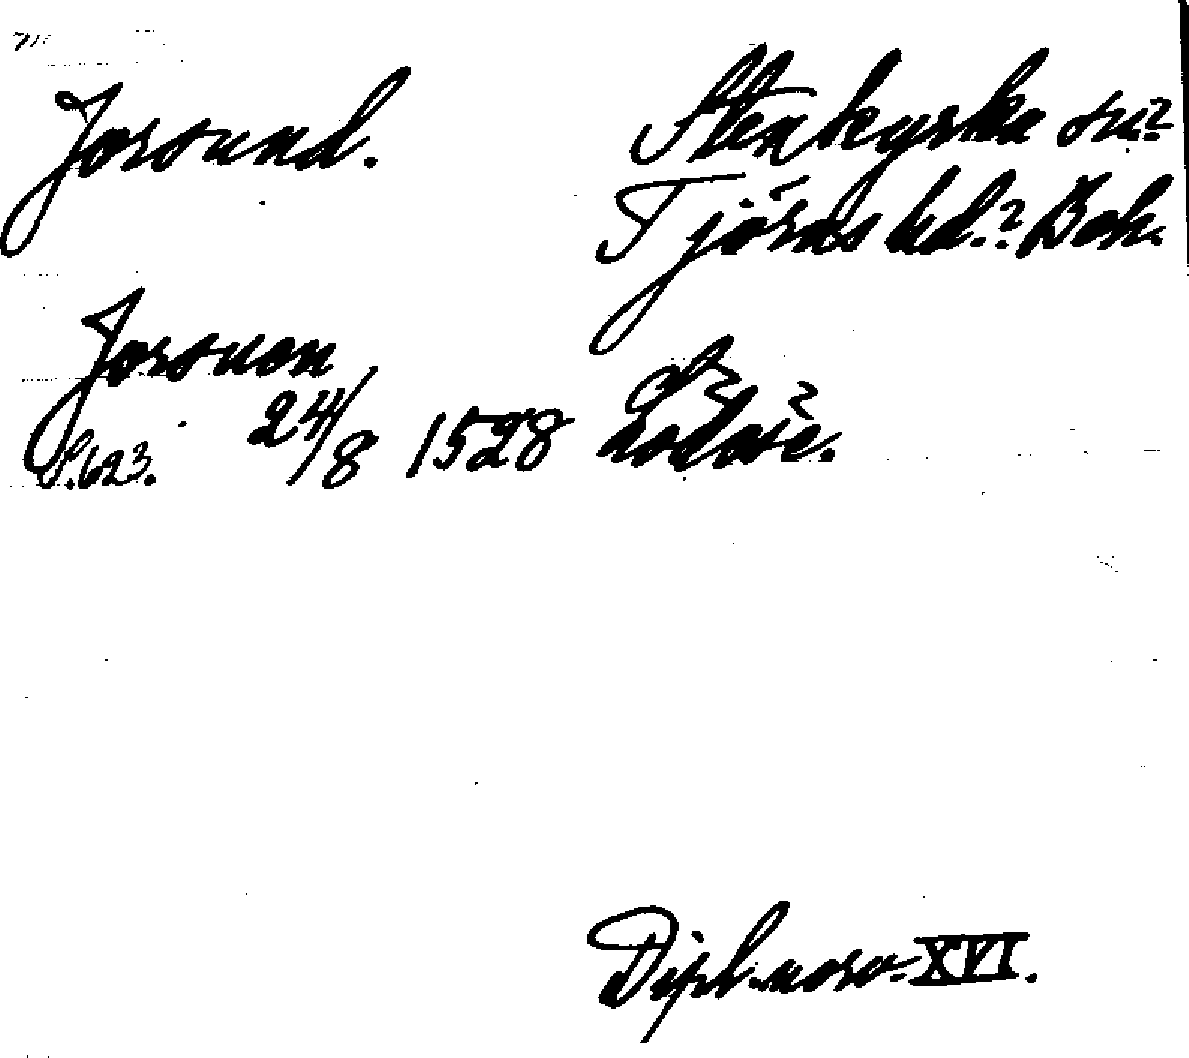 Jorsund.
Stenkyrka sn?
Tjörns hd.? Boh.
Jorsuon
S. 623. 24/8 1528
Dipl. norv. XVI.